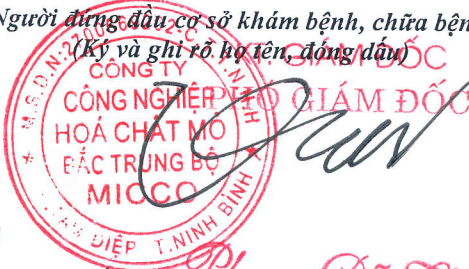 Người đứng đầu cơ sở khám bệnh, chữa bện
(Ký và ghi rõ họ tên, đóng dấu)
GIÁM ĐỐC
PHÓ GIÁM ĐỐC
M.S.D.N:2700
CÔNG TY
CÔNG NGHIỆP
HOÁ CHẤT MỎ
BẮC TRUNG BỘ
MICCO
ĐIỆP T.NINH BÌNH